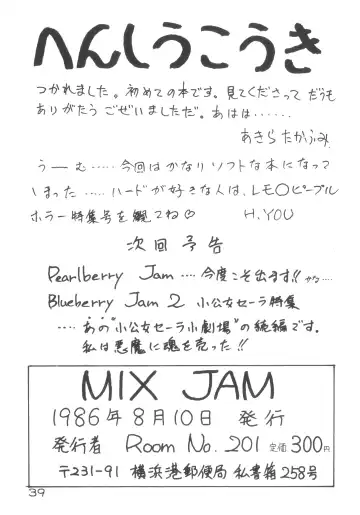 へんしうこうき
つかれました。初めての本です。見てくださって どうも
ありがたう ござぃましただ。あはは……
あきら たかふみ
うーむ……今回はかなりソフトな本になって
しまった ……ハードが好きな人は、レモ〇ピープル
ホラー特集号を観てね♡ H.YOU
次回予告
Pearlberry Jam …… 今度こそ出ます!! かな……
Blueberry Jam 2 小公女セーラ特集
…… あの“小公女セーラ小劇場”の続編です。
私は悪魔に魂を売った!!
MIX JAM
1986年8月10日 発行
発行者 Room No. 201 定価 300円
〒231-91 横浜港郵便局 私書箱258号
39